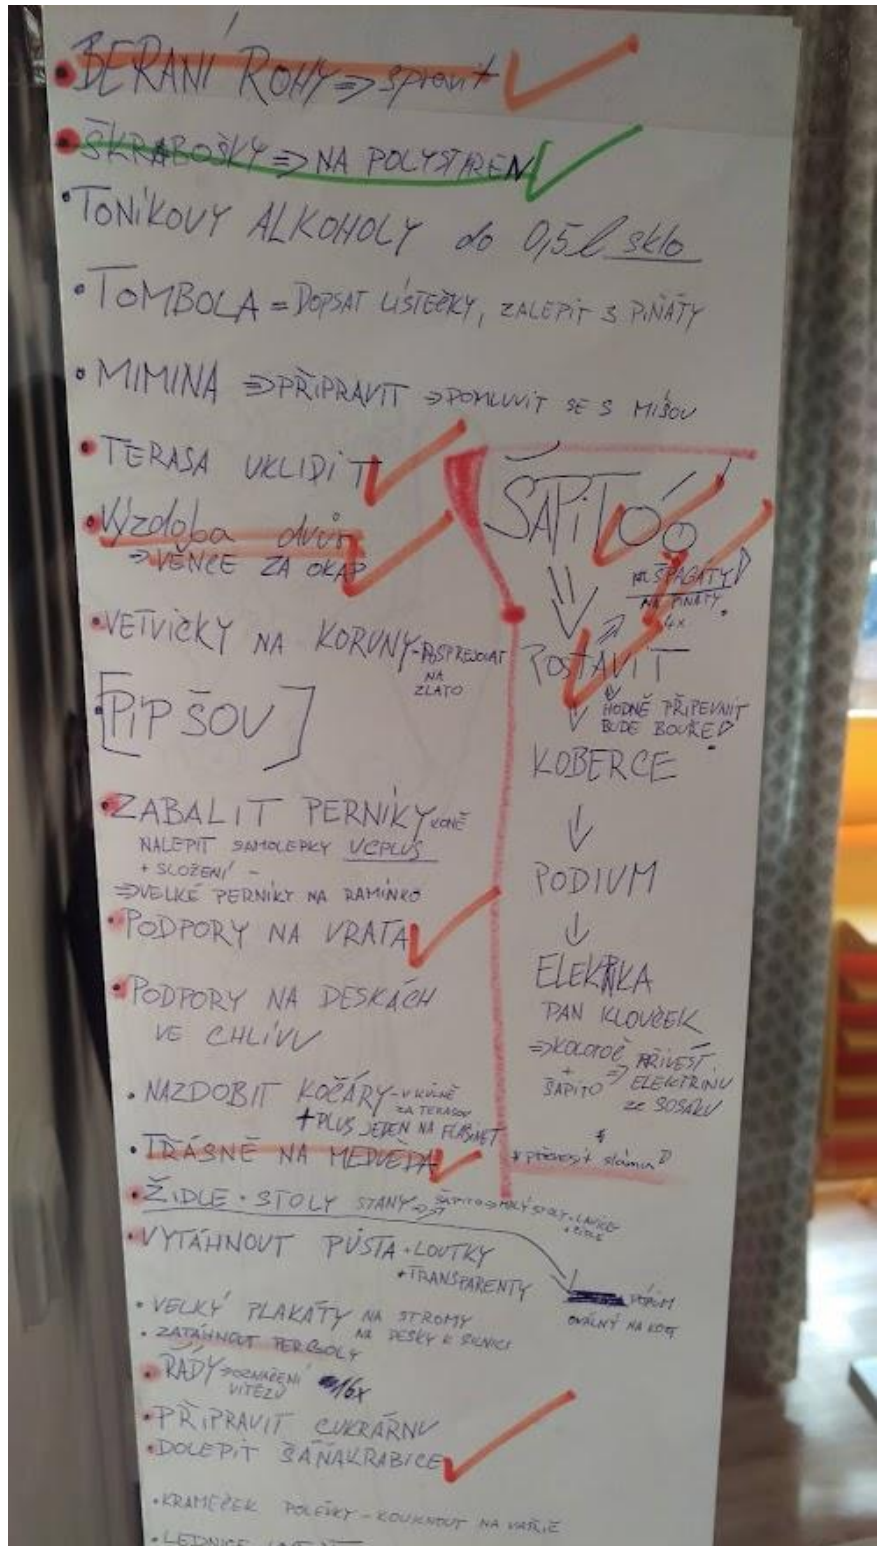 BERANÍ ROHY => spravit
ŠKRABOŠKY => NA POLYSTAREN
TONÍKOVY ALKOHOLY do 0,5l sklo
TOMBOLA = DOPSAT LÍSTEČKY, ZALEPIT 3 PIŇÁTY
MIMINA => PŘIPRAVIT => POMLUVIT SE S MÍŠOU
TERASA UKLIDIT
Výzdoba dvůr
=> VĚNCE ZA OKAP
VĚTVIČKY NA KORUNY - POSPREJOVAT
NA
ZLATO
[PÍP ŠOV]
ZABALIT PERNÍKY KONĚ
NALEPIT SAMOLEPKY UCPLUS
+ SLOŽENÍ -
=> VELKÉ PERNÍKY NA RAMÍNKO
PODPORY NA VRATA
PODPORY NA DESKÁCH
VE CHLÍVU
NAZDOBIT KOČÁRY - V KŮLNĚ
ZA TERASOU
+ PLUS JEDEN NA FLAŠINET
TŘÁSNĚ NA MEDVĚDA
ŽIDLE + STOLY STANY => ŠAPITO => MALÝ STOLY + LAVICE
+ ŽIDLE
VYTÁHNOUT PÚSTA + LOUTKY
+ TRANSPARENTY
PÓDIUM
OVÁLNÝ NA
VELKÝ PLAKÁTY NA STROMY
NA DESKY K SILNICI
ZATÁHNOUT PERGOLY
ŘÁDY => OZNAČENÍ
VÍTĚZŮ 16x
PŘIPRAVIT CUKRÁRNU
DOLEPIT ŠAŇAKRABICE
KRÁMEČEK POLÉVKY - KOUKNOUT NA VAŘIČ
LEDNICE
ŠAPITÓ
ŠPAGÁTY
NA PIŇÁTY
4x
POSTAVIT
HODNĚ PŘIPEVNIT
BUDE BOUŘE
KOBERCE
PODIUM
ELEKRKA
PAN KLOUČEK
=> KOLOTOČ + ŠAPITO => PŘIVÉST
ELEKTRINU
ze SOSÁKU
+ přivést slámu